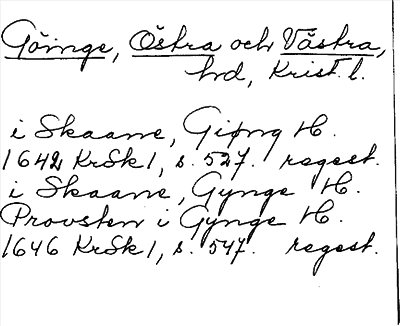 Göinge, Östra och Västra,
hd, Krist. l.
i Skaane, Giøng H.
1642 KrSk 1, s. 527. regest.
i Skaane, Gynge H.
Provsten i Gynge H.
1646 KrSk 1, s. 547. regest.